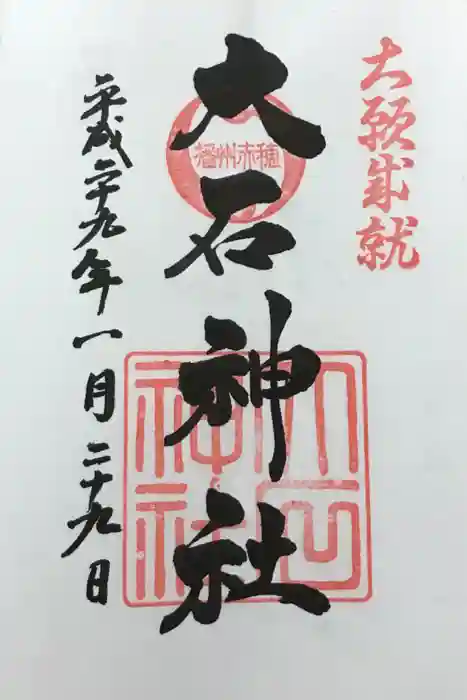 大願成就
播州赤穂
大石神社
大石神社
平成二十九年一月二十九日